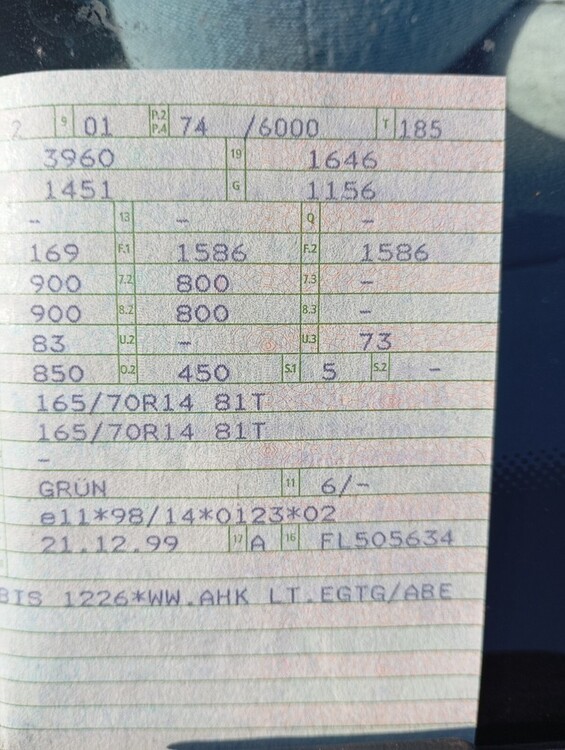 2 9 01 P.2 P.4 74 /6000 T 185
3960 19 1646
1451 G 1156
- 13 - Q -
169 F.1 1586 F.2 1586
900 7.2 800 7.3 -
900 8.2 800 8.3 -
83 U.2 - U.3 73
850 O.2 450 S.1 5 S.2 -
165/70R14 81T
165/70R14 81T
-
GRÜN 11 6/-
e11*98/14*0123*02
21.12.99 17 A 16 FL505634
BIS 1226*WW.AHK LT.EGTG/ABE